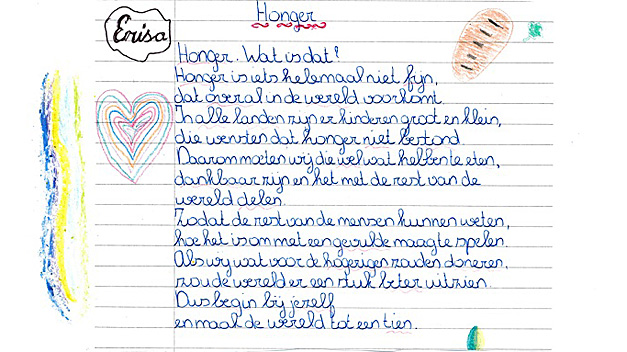 Erisa
Honger
Honger. Wat is dat?
Honger is iets helemaal niet fijn,
dat overal in de wereld voorkomt.
In alle landen zijn er kinderen groot en klein,
die wensten dat honger niet bestond.
Daarom moeten wij die wel wat hebben te eten,
dankbaar zijn en het met de rest van de
wereld delen.
Zodat de rest van de mensen kunnen weten,
hoe het is om met een gevulde maag te spelen.
Als wij wat voor de hogerigen zouden doneren,
zou de wereld er een stuk beter uitzien.
Dus begin bij jezelf
en maak de wereld tot een tien.